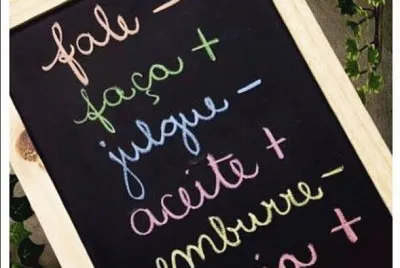 fale -
faça +
julgue -
aceite +
emburre -